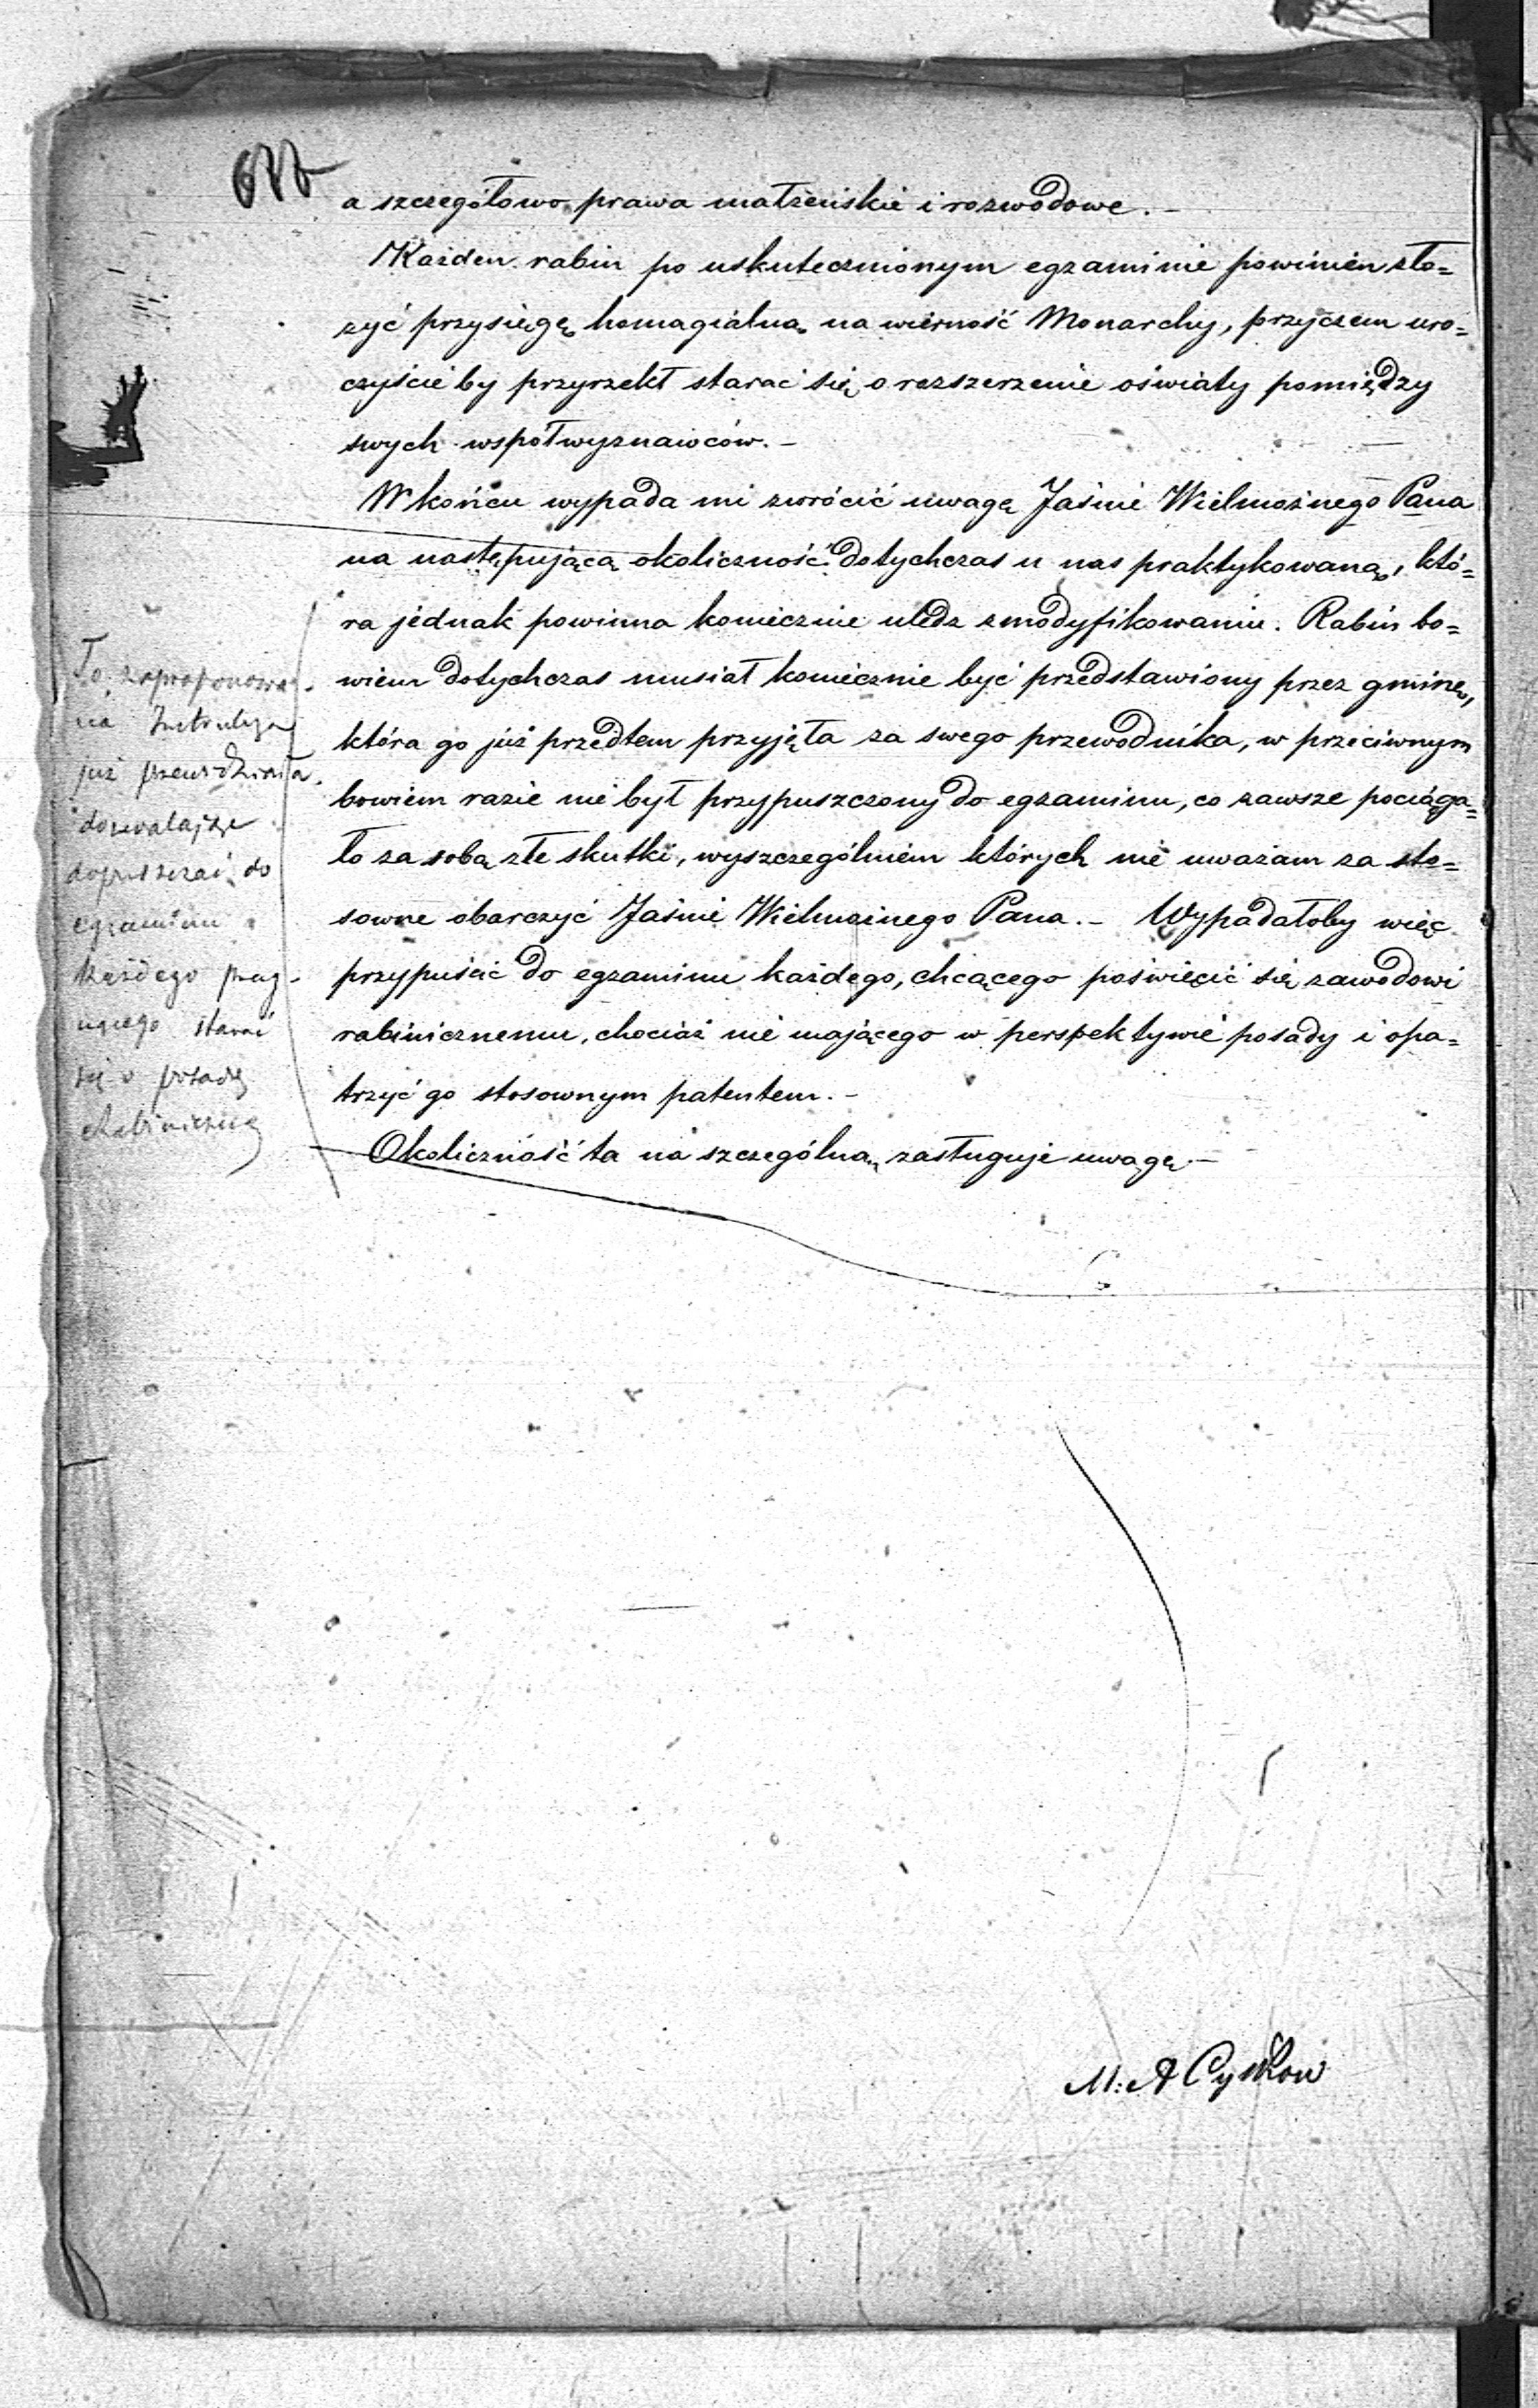 a szczegółowo prawa małżeńskie i rozwodowe. –
Każden rabin po uskutecznionym egzaminie powinien zło=
żyć przysięgę homagialną na wierność Monarchy, przyczem uro=
czyście by przyrzekł starać się o rozszerzenie oświaty pomiędzy
swych współwyznawców. –
W końcu wypada mi zwrócić uwagę Jaśnie Wielmożnego Pana
na następującą okoliczność dotychczas u nas praktykowaną, któ=
ra jednak powinna koniecznie uledz zmodyfikowaniu. Rabin bo=
wiem dotychczas musiał koniecznie być przedstawiony przez gminę,
która go już przedtem przyjęła za swego przewodnika, w przeciwnym
bowiem razie nie był przypuszczony do egzaminu, co zawsze pociąga=
ło za sobą złe skutki, wyszczególniem których nie uważam za sto=
sowne obarczyć Jaśnie Wielmożnego Pana. – Wypadałoby więc
przypuścić do egzaminu każdego, chcącego poświęcić się zawodowi
rabinicznemu, chociaż nie mającego w perspektywie posady i opa=
trzyć go stosownym patentem. –
Okoliczność ta na szczególną zasługuje uwagę. –
To zaproponowa-
na Instrukcya
już przewidziała
dozwalając
dopuszczać do
egzaminu
każdego prag-
nącego starać
się o posadę
Rabiniczną
M: A Cylkow